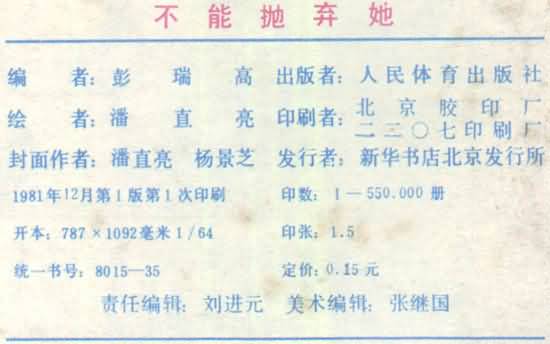 不能抛弃她
编者：彭瑞高 出版者：人民体育出版社
绘者：潘直亮 印刷者：北京胶印厂
二二〇七印刷厂
封面作者：潘直亮 杨景芝 发行者：新华书店北京发行所
1981年12月第1版第1次印刷 印数：1—550.000册
开本：787×1092毫米1/64 印张：1.5
统一书号：8015—35 定价：0.15元
责任编辑：刘进元 美术编辑：张继国